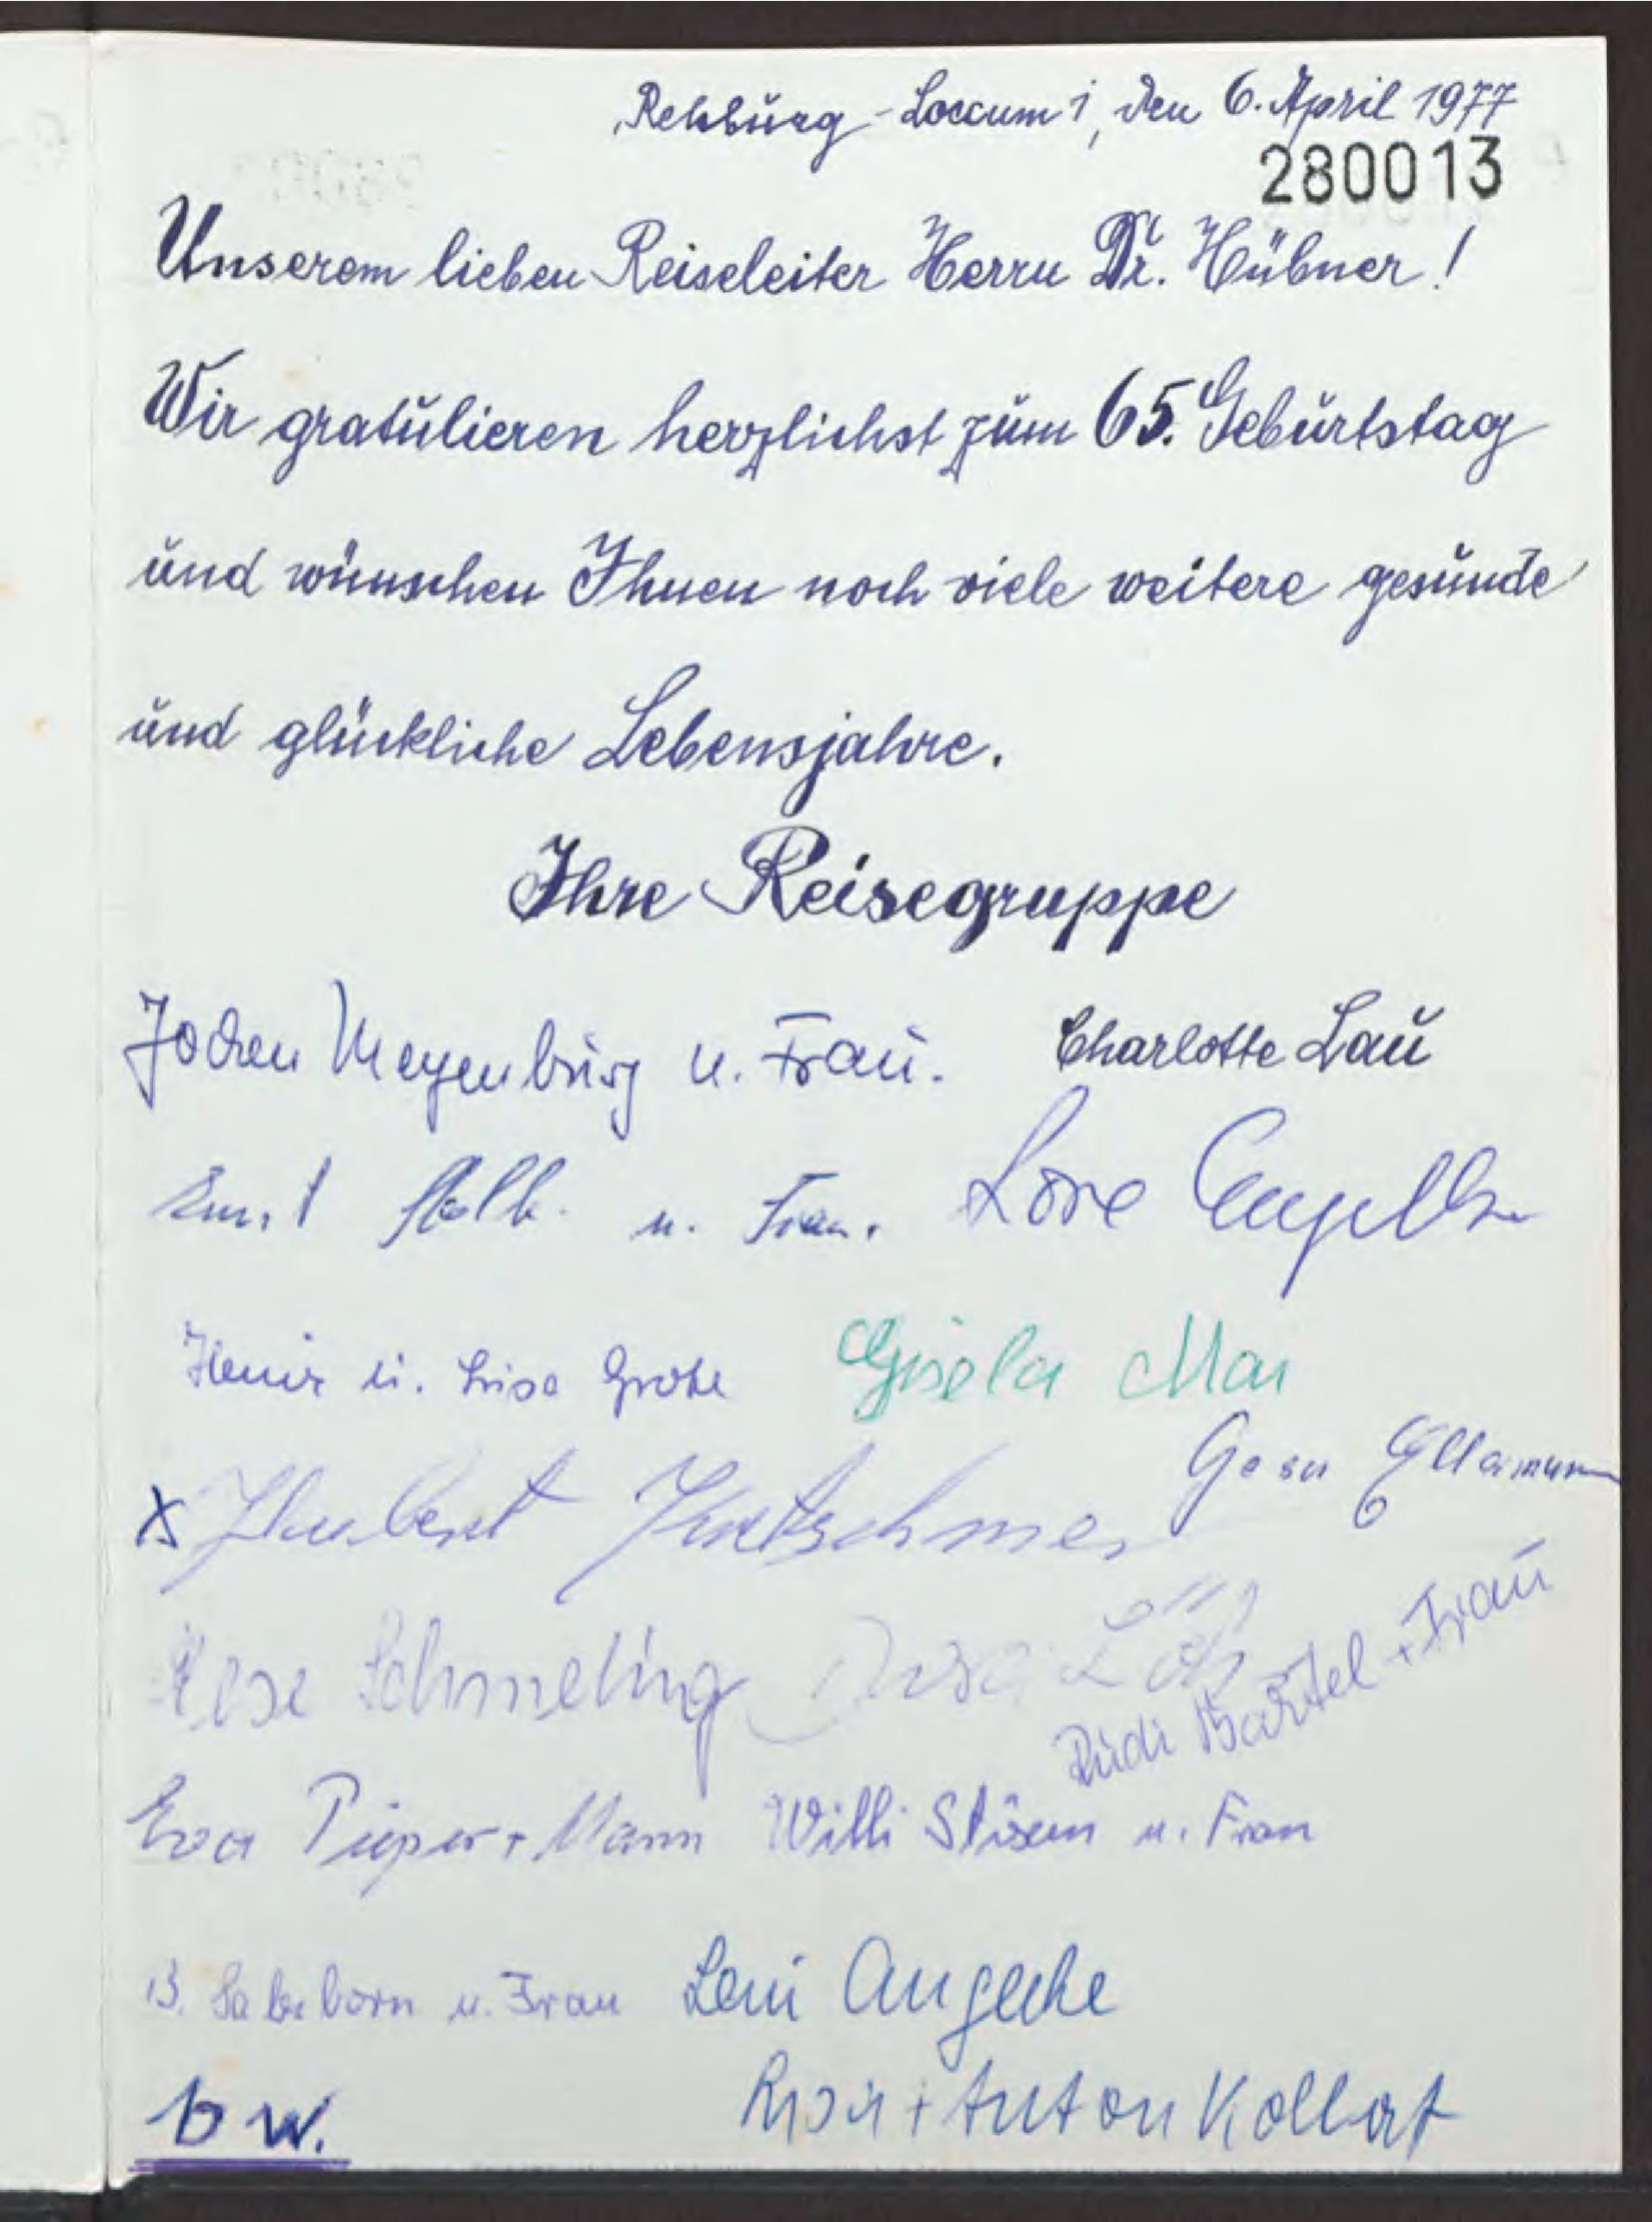 Rehburg-Loccum 1, den 6. April 1977
280013
Unserem lieben Reiseleiter Herrn Dr. Hübner!
Wir gratulieren herzlichst zum 65. Geburtstag
und wünschen Ihnen noch viele weitere gesunde
und glückliche Lebensjahre.
Ihre Reisegruppe
Jochen Meyenburg u. Frau. Charlotte Lau
u. Frau. Lore
u. Grote Gisela Mai
Hubert
Schmeling
Rudi Bartel + Frau
Eva Pieper + Mann Willi u. Frau
B. u. Frau Leni
+ Anton Kollert
b w.